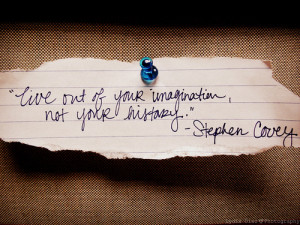 "Live out of your imagination,
not your history."
- Stephen Covey
Photography